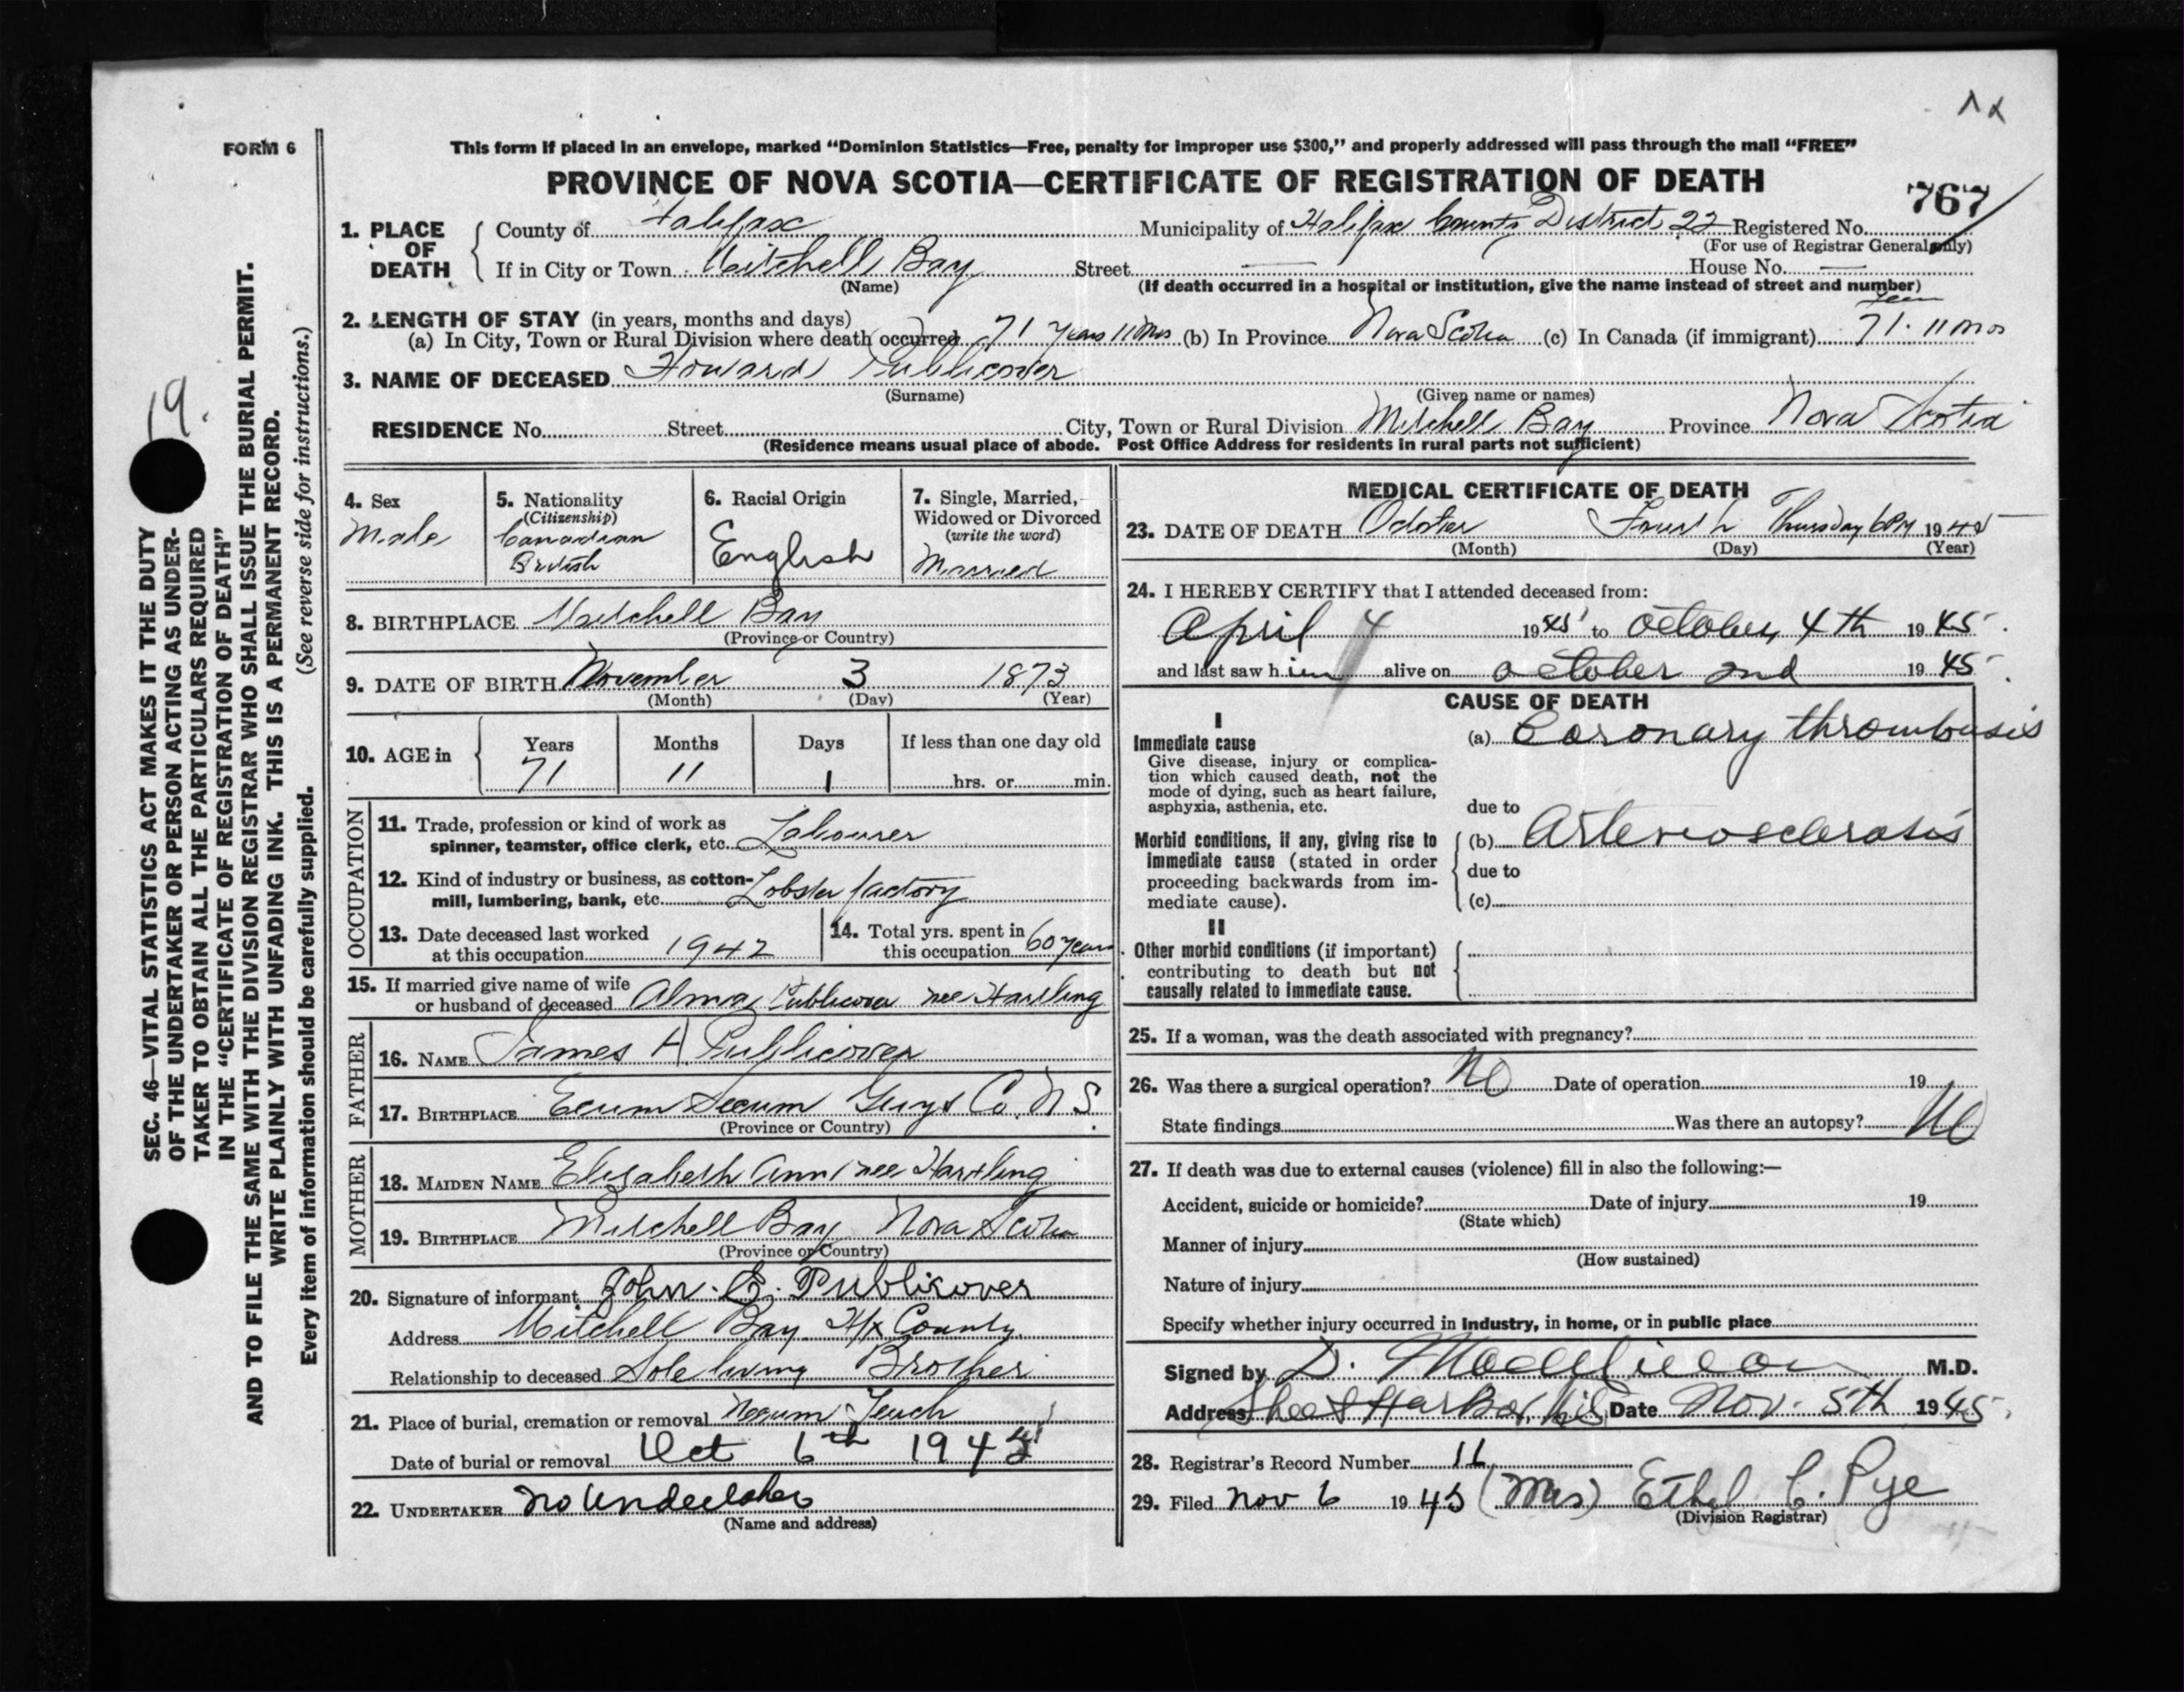 FORM 6
This form if placed in an envelope, marked “Dominion Statistics—Free, penalty for improper use $300,” and properly addressed will pass through the mail “FREE”
PROVINCE OF NOVA SCOTIA—CERTIFICATE OF REGISTRATION OF DEATH
767
1. PLACE OF DEATH
County of Halifax Municipality of Halifax County District 22 Registered No.
(For use of Registrar General only)
If in City or Town Mitchell Bay Street — House No. —
(Name) (If death occurred in a hospital or institution, give the name instead of street and number)
2. LENGTH OF STAY (in years, months and days)
(a) In City, Town or Rural Division where death occurred 71 years 11 mos (b) In Province Nova Scotia (c) In Canada (if immigrant) 71 years 11 mos
3. NAME OF DECEASED Howard Publicover
(Surname) (Given name or names)
RESIDENCE No. Street City, Town or Rural Division Mitchell Bay Province Nova Scotia
(Residence means usual place of abode. Post Office Address for residents in rural parts not sufficient)
4. Sex
Male
5. Nationality
(Citizenship)
Canadian
British
6. Racial Origin
English
7. Single, Married,
Widowed or Divorced
(write the word)
Married
8. BIRTHPLACE Mitchell Bay
(Province or Country)
9. DATE OF BIRTH November 3 1873
(Month) (Day) (Year)
10. AGE in
Years Months Days If less than one day old
71 11 1 hrs. or min.
OCCUPATION
11. Trade, profession or kind of work as
spinner, teamster, office clerk, etc. Labourer
12. Kind of industry or business, as cotton-
mill, lumbering, bank, etc. Lobster factory
13. Date deceased last worked
at this occupation 1942
14. Total yrs. spent in
this occupation 60 years
15. If married give name of wife
or husband of deceased Alma Publicover nee Hartling
FATHER
16. NAME James A Publicover
17. BIRTHPLACE Ecum Secum Guys Co. N S.
(Province or Country)
MOTHER
18. MAIDEN NAME Elizabeth Ann nee Hartling
19. BIRTHPLACE Mitchell Bay Nova Scotia
(Province or Country)
20. Signature of informant John E. Publicover
Address Mitchell Bay Hfx County
Relationship to deceased Sole living Brother
21. Place of burial, cremation or removal Necum Teuch
Date of burial or removal Oct 6th 1945
22. UNDERTAKER No Undertaker
(Name and address)
MEDICAL CERTIFICATE OF DEATH
23. DATE OF DEATH October Fourth Thursday 6 PM 1945
(Month) (Day) (Year)
24. I HEREBY CERTIFY that I attended deceased from:
April 4 1945 to October 4th 1945.
and last saw him alive on October 2nd 1945.
CAUSE OF DEATH
I
Immediate cause
Give disease, injury or complica-
tion which caused death, not the
mode of dying, such as heart failure,
asphyxia, asthenia, etc.
(a) Coronary thrombosis
due to
Morbid conditions, if any, giving rise to
immediate cause (stated in order
proceeding backwards from im-
mediate cause).
(b) Arteriosclerosis
due to
(c)
II
Other morbid conditions (if important)
contributing to death but not
causally related to immediate cause.
25. If a woman, was the death associated with pregnancy?
26. Was there a surgical operation? No Date of operation 19
State findings Was there an autopsy? No
27. If death was due to external causes (violence) fill in also the following:—
Accident, suicide or homicide? Date of injury 19
(State which)
Manner of injury
(How sustained)
Nature of injury
Specify whether injury occurred in industry, in home, or in public place
Signed by D. M.D.
Address Sheet Harbor, N.S. Date Nov. 5th 1945.
28. Registrar's Record Number 16
29. Filed Nov 6 1945 (Mrs) Ethel C. Pye
(Division Registrar)
19.
SEC. 46—VITAL STATISTICS ACT MAKES IT THE DUTY
OF THE UNDERTAKER OR PERSON ACTING AS UNDER-
TAKER TO OBTAIN ALL THE PARTICULARS REQUIRED
IN THE “CERTIFICATE OF REGISTRATION OF DEATH”
AND TO FILE THE SAME WITH THE DIVISION REGISTRAR WHO SHALL ISSUE THE BURIAL PERMIT.
WRITE PLAINLY WITH UNFADING INK. THIS IS A PERMANENT RECORD.
Every item of information should be carefully supplied. (See reverse side for instructions.)